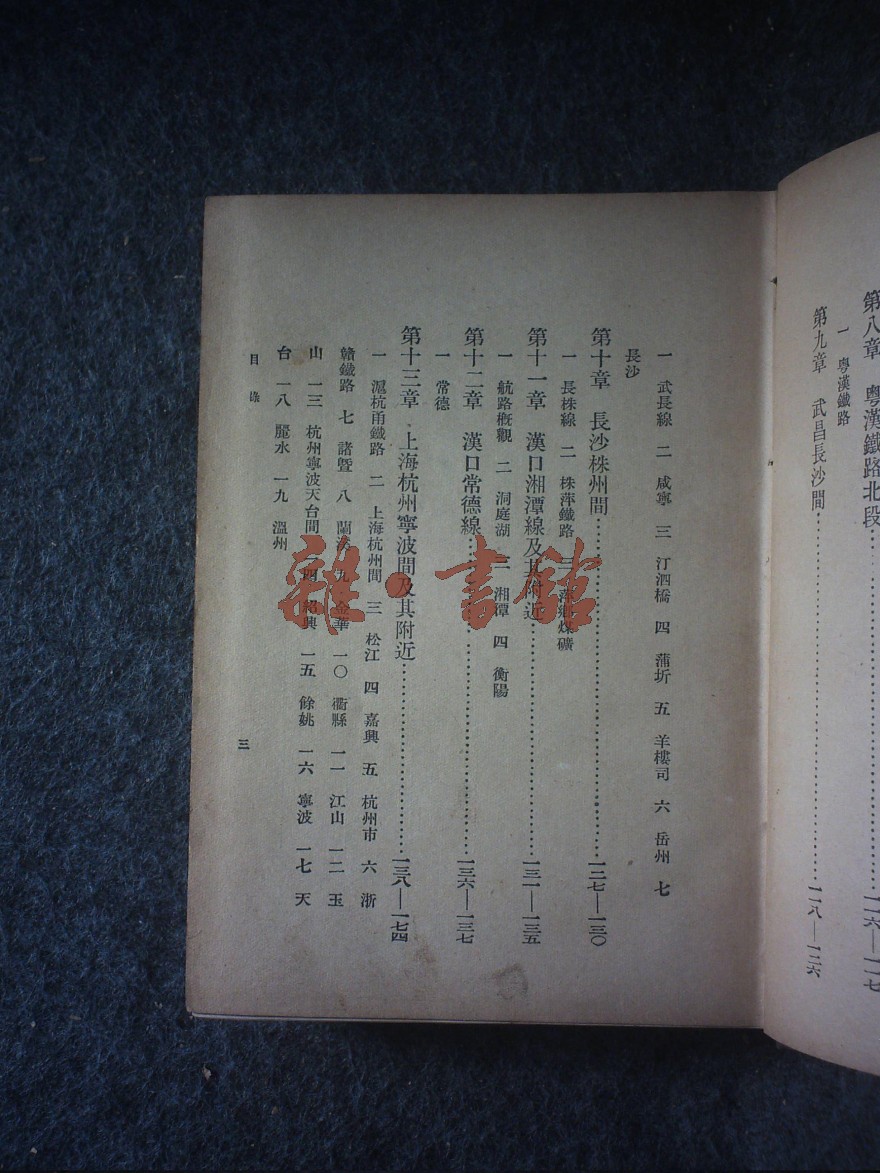 第八章　粵漢鐵路北段……一一六—一一七
一　粵漢鐵路
第九章　武昌長沙間……一一八—一二六
一　武長線　二　咸寧　三　汀泗橋　四　蒲圻　五　羊樓司　六　岳州　七
長沙
第十章　長沙株州間……一二七—一三〇
一　長株線　二　株萍鐵路　三　萍鄉煤礦
第十一章　漢口湘潭線及其附近……一三一—一三五
一　航路概觀　二　洞庭湖　三　湘潭　四　衡陽
第十二章　漢口常德線……一三六—一三七
一　常德
第十三章　上海杭州寧波間及其附近……一三八—一七四
一　滬杭甬鐵路　二　上海杭州間　三　松江　四　嘉興　五　杭州市　六　浙
贛鐵路　七　諸暨　八　蘭溪　九　金華　一〇　衢縣　一一　江山　一二　玉
山　一三　杭州寧波天台間　一四　紹興　一五　餘姚　一六　寧波　一七　天
台　一八　麗水　一九　溫州
目錄
三
雜·書館